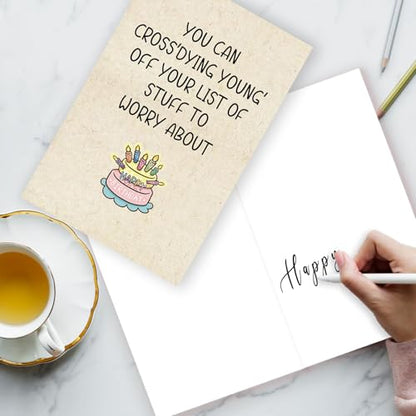 YOU CAN
CROSS'DYING YOUNG'
OFF YOUR LIST OF
STUFF TO
WORRY ABOUT
HAPPY
BIRTHDAY
Happy